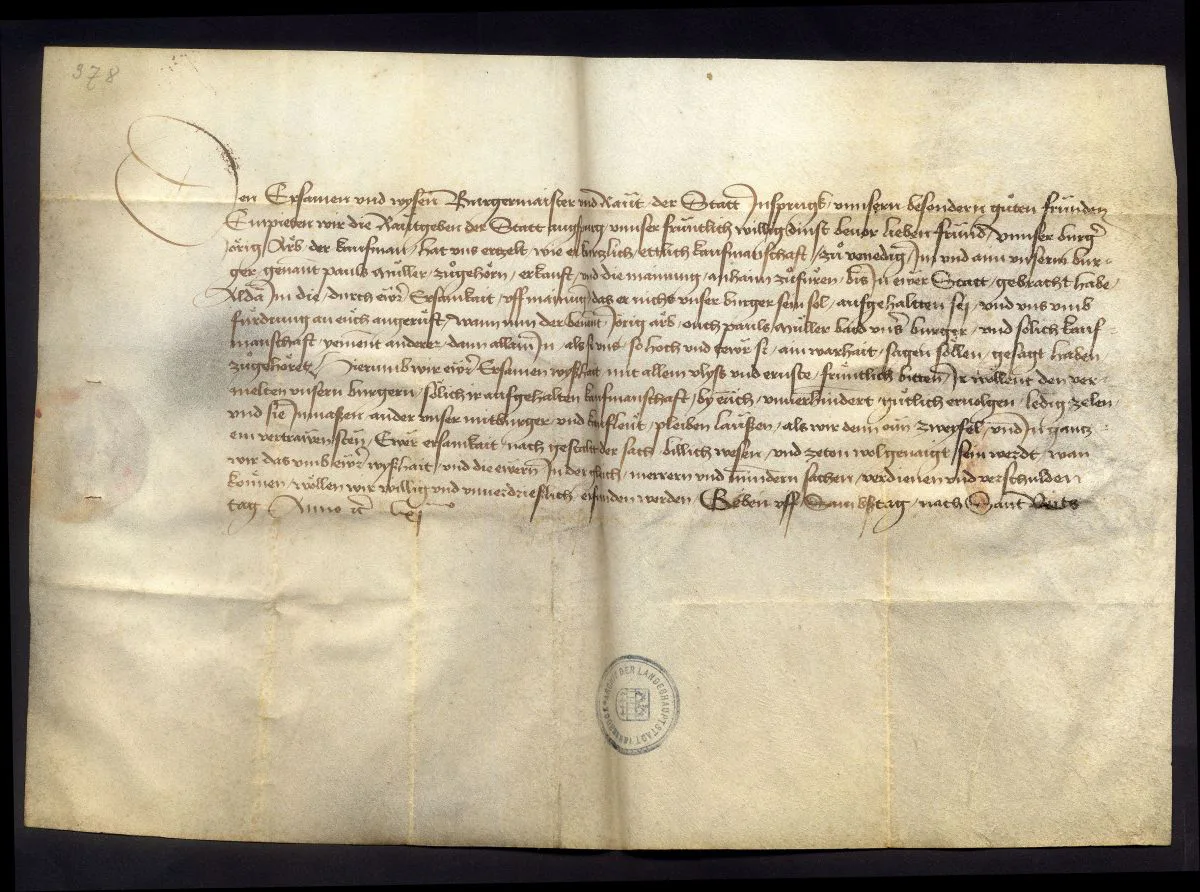 978
Den Ersamen und wysen Burgermaister und Raut der Statt Insprugk, unnsern besondern guͦten fründen
Empieten wir die Rautgeben der Statt Augspurg unnser früntlich willig dinst bevor lieben fründ, unnser burger
Jörig der kaufman, hat uns erzelt, wie er kurzlich, ettlich kaufmanschaft, zuͦ venedig, Im und ann unserm bur-
ger genant pauls Müller, zuͦgehörn, erkauft, und die mainung, anhaim zuͦfüren, bis In ewer Statt, gebracht habe,
Alda Im die, durch ewr Ersamkait, uff mainung, das er nicht unser burger sein sol, aufgehaltten sei, und uns umb
fürdrung an euch angerüft, Wann nun der benant Jörig, auch pauls Müller baid unser burger, und sölich kauf-
manschaft, yement anderer, dann allain In, als sy uns, so hoch und tewr si, ain warhait, sagen söllen, gesagt haben,
zuͦgehöret, Hierumb wir ewr Ersamen wyßhait mit allem vlyß und ernste, früntlich bitten, Ir wöllent den ver-
melten unsern burgern, sölich ir aufgehalten kaufmanschaft, by euch, unverhindert, gütlich ervolgen, ledig zelen,
und sie Inmaßen ander unser mitburger, und kaufleut, pleiben laußen, als wir denn on zweyfel, und In gantz
em vertrauwen sien, Ewer ersamkait, nach gestalt der sach, billich wesen, und zeton wolgenaigt sein werdt, wan
wir das umb ewr wyßhait, und die ewern, In der gleich, merrern und mindern sachen, verdienen und verschulden
können, wöllen wir willig und unverdrießlich erfunden werden, Geben uff Sambßtag, nach Sannt Veits
tag, Anno
ARCHIV DER LANDESHAUPTSTADT INNSBRUCK